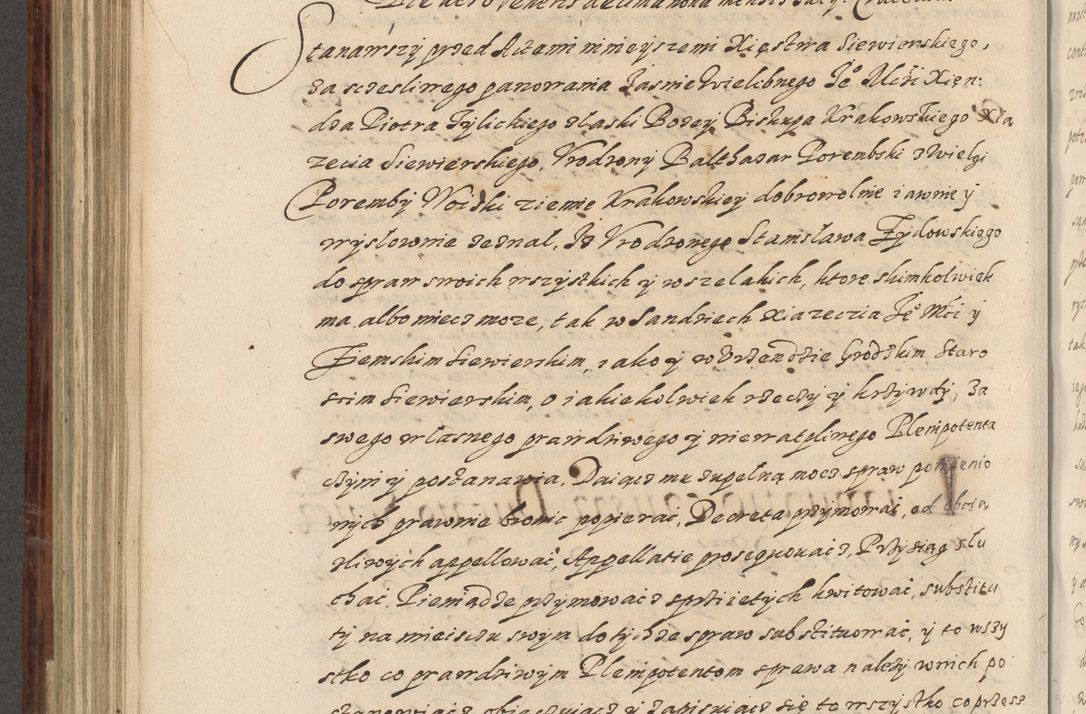 Die vero Veneris decima nona mensis July.
Stanawszy przed Actami ninieyszemi Xięstwa Siewierskiego,
za sczesliwego panowania Jasnie Wielebnego Jo Mći Xięn:
dza Piotra Tylickiego z łaski Bozey Biskupa Krakowskiego Xią
zecia Siewierskiego, Vrodzony Balthazar Porembski z Wielgi
Poremby Woiski ziemie Krakowskiey dobrowolnie iawnie y
wyslownie zeznal, Iz Vrodzonego Stanisława Zydowskiego
do spraw swoich wszystkich y wszelakich, ktore skimkolwiek
ma albo miecz moze, tak w Sandziech Xiazeczia Jo Mći y
Ziemskim Siewierskim, iako y w Vrzendzie Grodzkim Staro
scim Siewierskim, o iakiekolwiek rzeczy y krzywdy, za
swego własnego prawdziwego y niewatpliwego Plenipotenta
czyni y postanawia, Daiącz mu zupelną mocz spraw pomienio
nych prawnie bronic popierać, Decreta przymować, od obcią
zliwych appellować, Appellatie prosequowacz, Przysiąg słu
chać, Pieniądze przymowacz z przyietych kwitować, substitu
ty na mieisczu swym do tychze spraw substituować, y to wszy
stko co prawdziwym Plenipotentom z prawa nalezy w nich po
stanowiącz obiecziącz y zapisuiącz się to wszystko co przesz